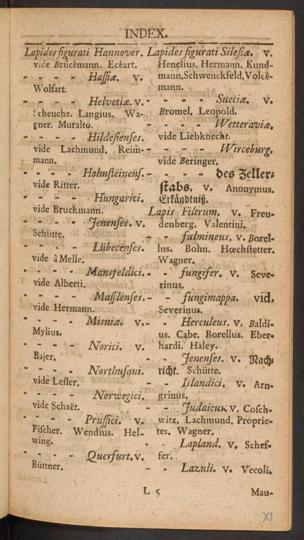 INDEX.
Lapides figurati Hannover.
vide Bruckmann. Eckart.
- - - - Hassiæ. v.
Wolfart.
- - - - Helvetiæ. v.
Scheuchz. Langius. Wa-
gner. Muralto.
- - - - Hildesienses.
vide Lachmund. Reim-
mann.
- - - - Hohnsteinens.
vide Ritter.
- - - - Hungarici.
vide Bruckmann.
- - - - Jenenses. v.
Schütte.
- - - - Lübecenses.
vide à Melle.
- - - - Mansfeldici.
vide Alberti.
- - - - Masslenses.
vide Hermann.
- - - - Misniæ. v.
Mylius.
- - - - Norici. v.
Bajer.
- - - - Northusani.
vide Lesser.
- - - - Norwegici.
vide Schaët.
- - - - Prussici. v.
Fischer. Wendius. Hel-
wing.
- - - - Querfurt. v.
Büttner.
Lapides figurati Silesiæ. v.
Henelius. Hermann. Kund-
mann, Schwenckfeld, Volck-
mann.
- - - - Sueciæ. v.
Bromel. Leopold.
- - - - Wetteraviæ.
vide Liebknecht.
- - - - Wirceburg.
vide Beringer.
- - - - des Zeller-
stabs. v. Anonymus.
Erkändtniß.
Lapis Filtrum. v. Freu-
denberg. Valentini.
- - fulmineus. v. Borel-
lus. Bohn. Hœchstetter.
Wagner.
- - fungifer. v. Seve-
rinus.
- - fungimappa. vid.
Severinus.
- - Herculeus. v. Baldi-
us. Cabe. Borellus. Eber-
hardi. Haley.
- - Jenenses. v. Nach-
richt. Schütte.
- - Islandici. v. Arn-
grinus.
- - Judaicus. v. Cosch-
witz. Lachmund. Proprie-
tes. Wagner.
- - Lapland. v. Schef-
fer.
- - Lazuli. v. Vecoli.
L 5
Mau-
XI